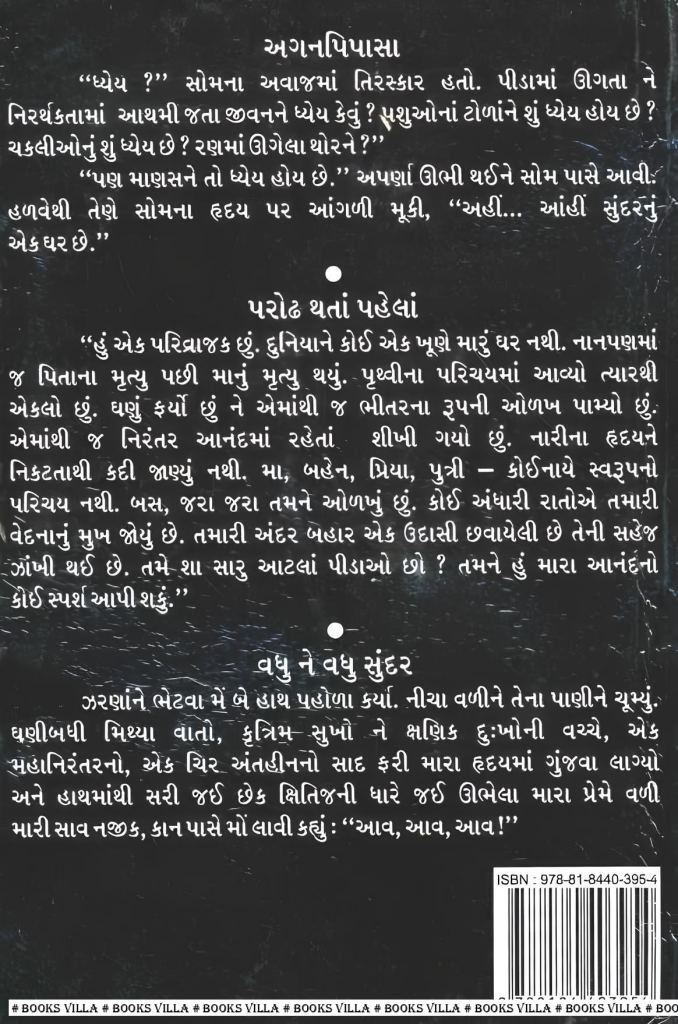 અગનપિપાસા
“ધ્યેય ?” સોમના અવાજમાં તિરસ્કાર હતો. પીડામાં ઊગતા ને
નિરર્થકતામાં આથમી જતા જીવનને ધ્યેય કેવું ? પશુઓનાં ટોળાંને શું ધ્યેય હોય છે ?
ચકલીઓનું શું ધ્યેય છે ? રણમાં ઊગેલા થોરને ?”
“પણ માણસને તો ધ્યેય હોય છે.” અપર્ણા ઊભી થઈને સોમ પાસે આવી.
હળવેથી તેણે સોમના હૃદય પર આંગળી મૂકી, “અહીં... આંહીં સુંદરનું
એક ઘર છે.”
●
પરોઢ થતાં પહેલાં
“હું એક પરિવ્રાજક છું. દુનિયાને કોઈ એક ખૂણે મારું ઘર નથી. નાનપણમાં
જ પિતાના મૃત્યુ પછી માનું મૃત્યુ થયું. પૃથ્વીના પરિચયમાં આવ્યો ત્યારથી
એકલો છું. ઘણું ફર્યો છું ને એમાંથી જ ભીતરના રૂપની ઓળખ પામ્યો છું.
એમાંથી જ નિરંતર આનંદમાં રહેતાં શીખી ગયો છું. નારીના હૃદયને
નિકટતાથી કદી જાણ્યું નથી. મા, બહેન, પ્રિયા, પુત્રી – કોઈનાયે સ્વરૂપનો
પરિચય નથી. બસ, જરા જરા તમને ઓળખું છું. કોઈ અંધારી રાતોએ તમારી
વેદનાનું મુખ જોયું છે. તમારી અંદર બહાર એક ઉદાસી છવાયેલી છે તેની સહેજ
ઝાંખી થઈ છે. તમે શા સારુ આટલાં પીડાઓ છો ? તમને હું મારા આનંદનો
કોઈ સ્પર્શ આપી શકું.”
●
વધુ ને વધુ સુંદર
ઝરણાંને ભેટવા મેં બે હાથ પહોળા કર્યા. નીચા વળીને તેના પાણીને ચૂમ્યું.
ઘણીબધી મિથ્યા વાતો, કૃત્રિમ સુખો ને ક્ષણિક દુઃખોની વચ્ચે, એક
મહાનિરંતરનો, એક ચિર અંતહીનનો સાદ ફરી મારા હૃદયમાં ગુંજવા લાગ્યો
અને હાથમાંથી સરી જઈ છેક ક્ષિતિજની ધારે જઈ ઊભેલા મારા પ્રેમે વળી
મારી સાવ નજીક, કાન પાસે મોં લાવી કહ્યું : “આવ, આવ, આવ !”
ISBN : 978-81-8440-395-4
# BOOKS VILLA # BOOKS VILLA # BOOKS VILLA # BOOKS VILLA # BOOKS VILLA # BOOKS VILLA # BOO